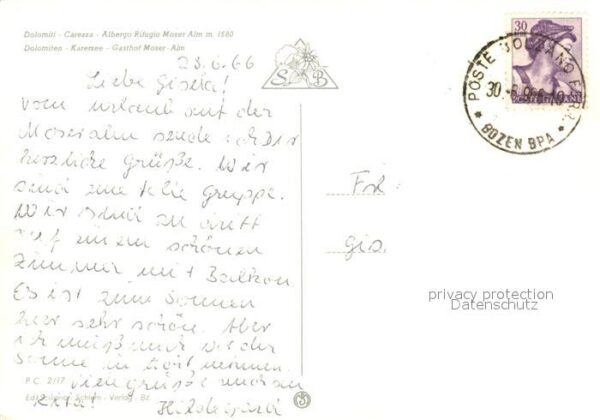 Dolomiti - Carezza - Albergo Rifugio Moser Alm m. 1580
Dolomiten - Karersee - Gasthof Moser-Alm
S B
23.6.66
Liebe Gisela!
vom Urlaub auf der
Moseralm sende ich Dir
herzliche Grüße. Wir
sind eine Gruppe.
Wir sind zu dritt
auf einem schönen
Zimmer mit Balkon.
Es ist zum Sonnen
hier sehr schön. Aber
ich muß mich vor der
Sonne in acht nehmen.
viele Grüße auch an
Rita! Hildegard
P.C. 2/17
Schlern - Verlag - Bz.
30
POSTE BOLZANO FERR.
30.-6.66-19
BOZEN BPA
Frl.
Gis.
privacy protection
Datenschutz